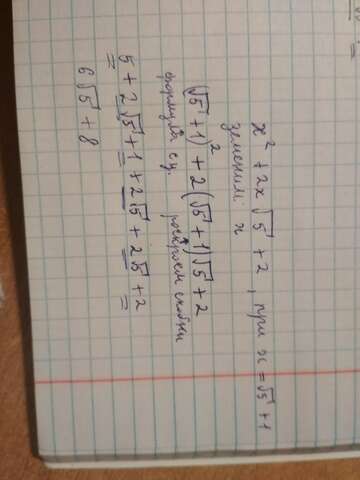 x² + 2x√5 + 2, при x = √5 + 1
заменим x
(√5 + 1)² + 2(√5 + 1)√5 + 2
формула с.у. роскроем скобки
5 + 2√5 + 1 + 2√5 + 2√5 + 2
6√5 + 8